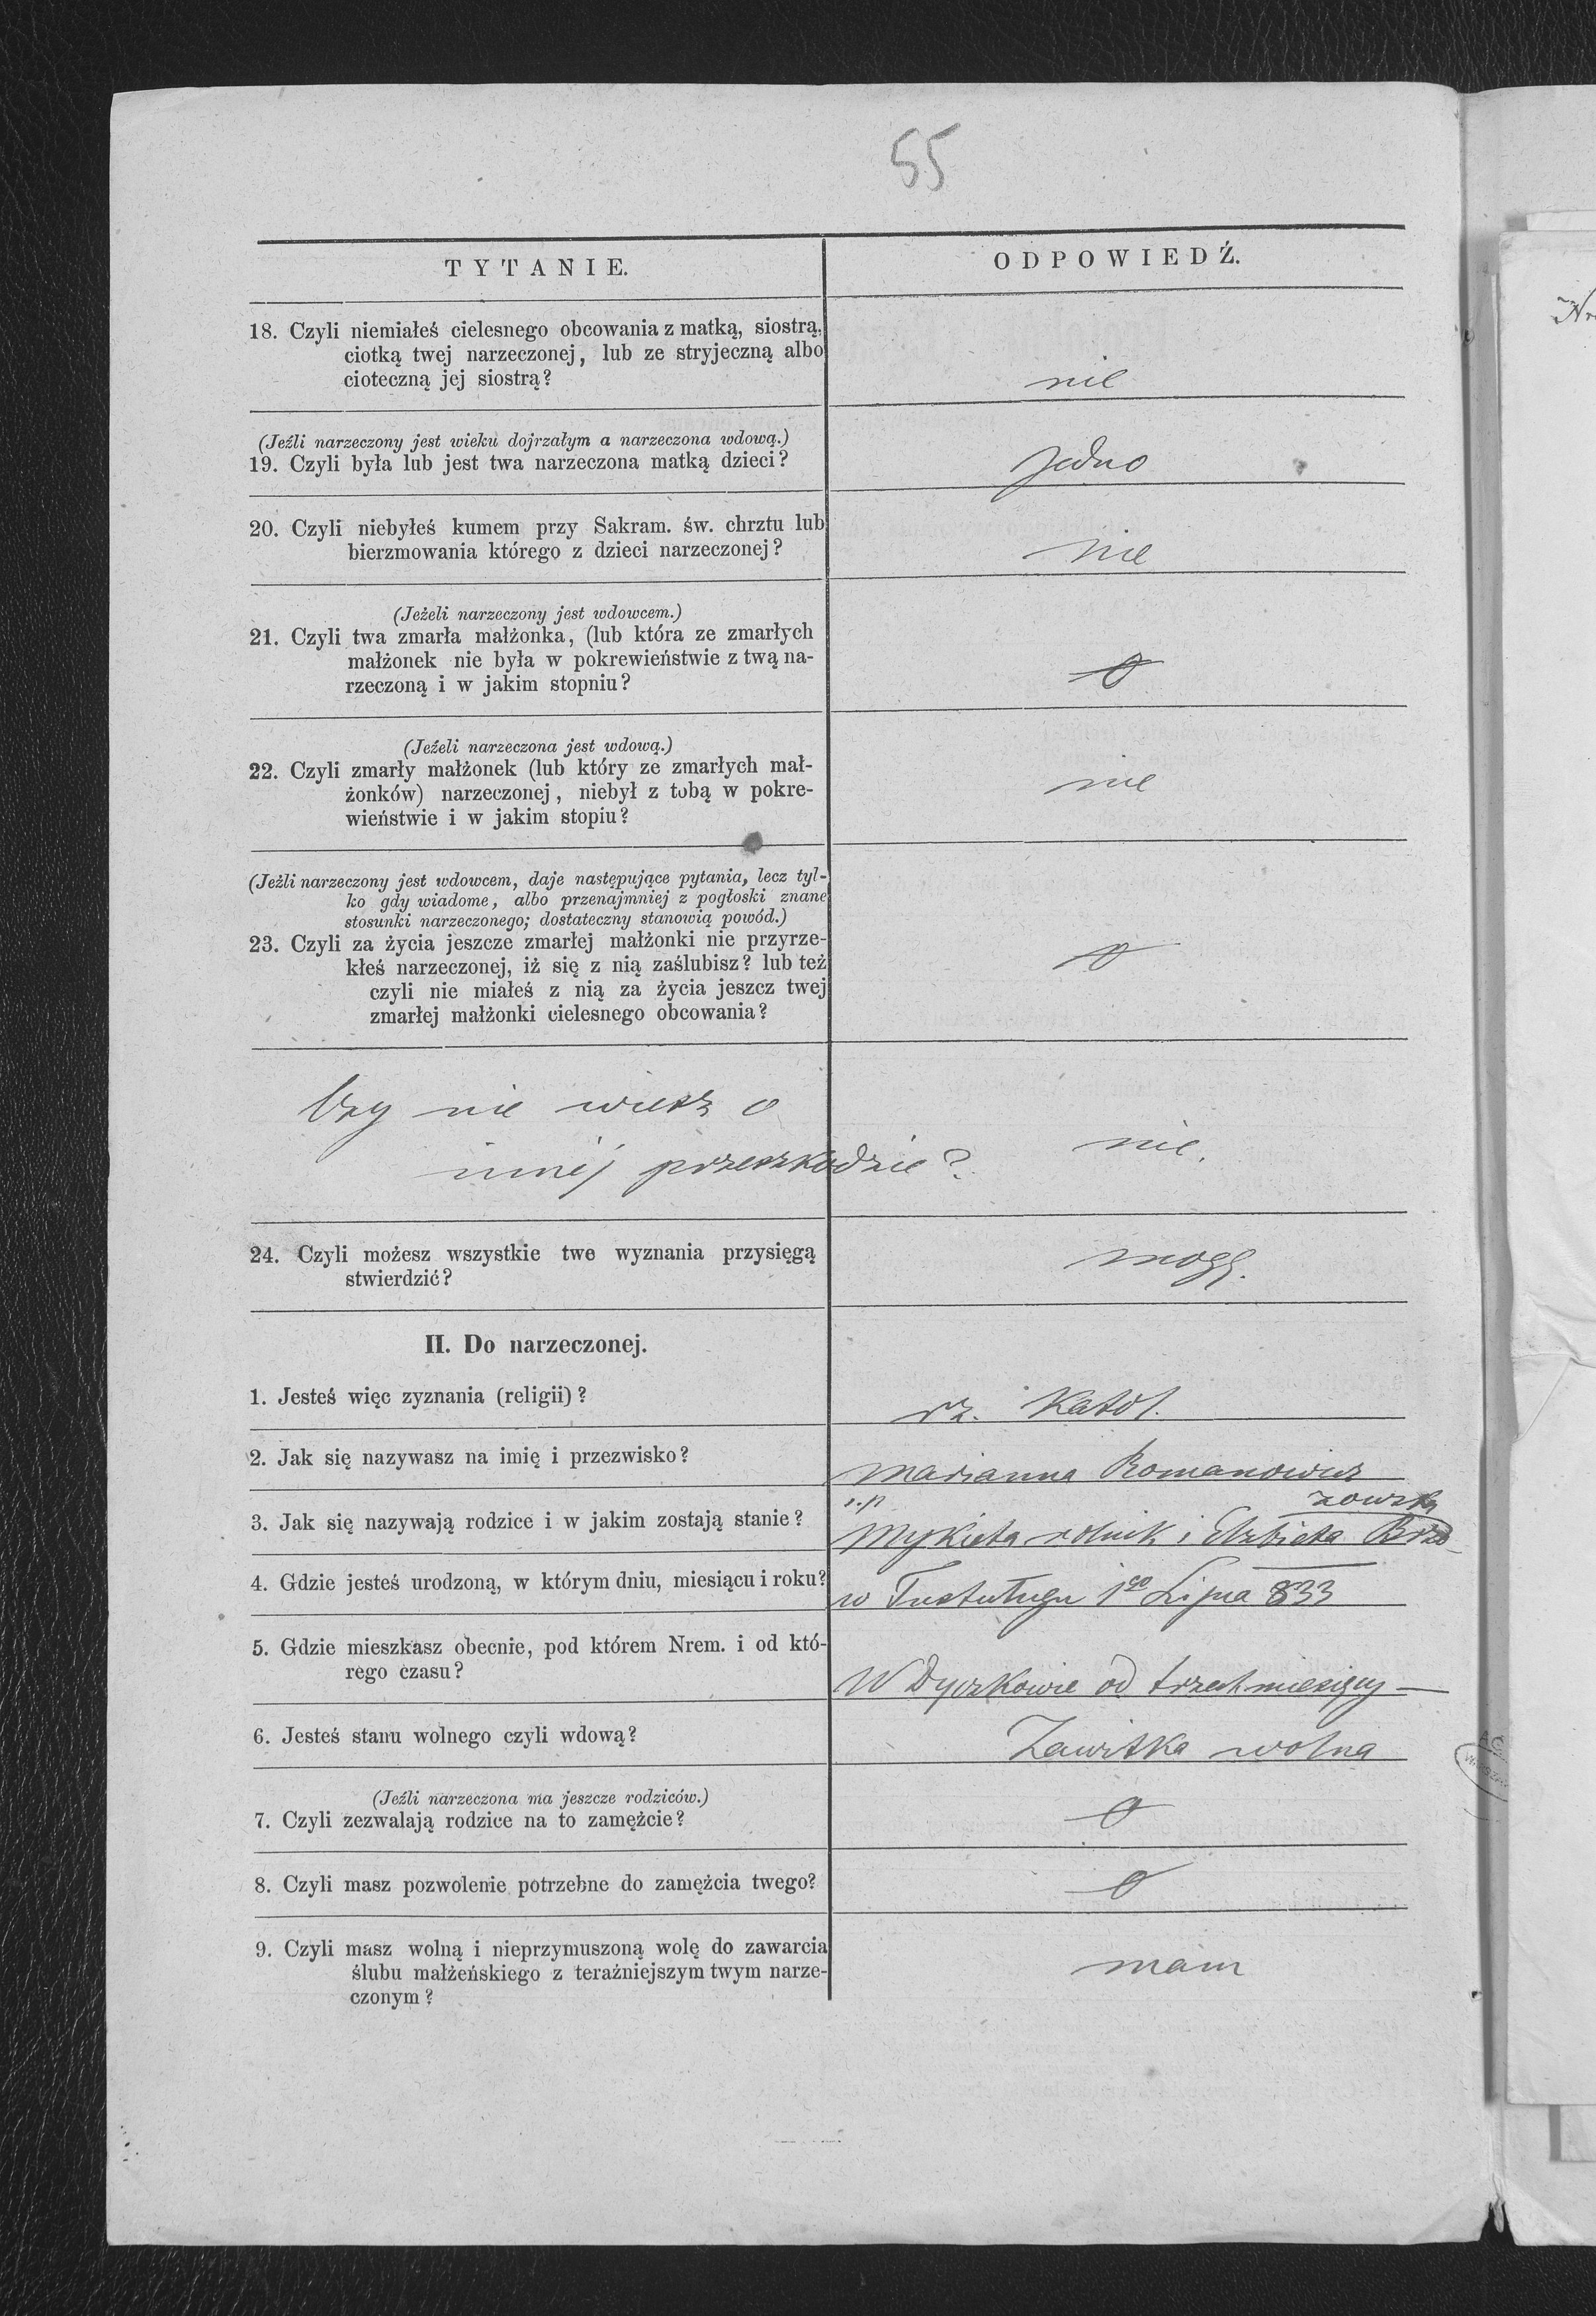 55
TYTANIE.
ODPOWIEDŹ.
18. Czyli niemiałeś cielesnego obcowania z matką, siostrą,
ciotką twej narzeczonej, lub ze stryjeczną albo
cioteczną jej siostrą?
nie
(Jeźli narzeczony jest wieku dojrzałym a narzeczona wdową.)
19. Czyli była lub jest twa narzeczona matką dzieci?
jedno
20. Czyli niebyłeś kumem przy Sakram. św. chrztu lub
bierzmowania którego z dzieci narzeczonej?
nie
(Jeżeli narzeczony jest wdowcem.)
21. Czyli twa zmarła małżonka, (lub która ze zmarłych
małżonek nie była w pokrewieństwie z twą na-
rzeczoną i w jakim stopniu?
0
(Jeżeli narzeczona jest wdową.)
22. Czyli zmarły małżonek (lub który ze zmarłych mał-
żonków) narzeczonej, niebył z tobą w pokre-
wieństwie i w jakim stopiu?
nie
(Jeżli narzeczony jest wdowcem, daje następujące pytania, lecz tyl-
ko gdy wiadome, albo przenajmniej z pogłoski znane
stosunki narzeczonego; dostateczny stanowią powód.)
23. Czyli za życia jeszcze zmarłej małżonki nie przyrze-
kłeś narzeczonej, iż się z nią zaślubisz? lub też
czyli nie miałeś z nią za życia jeszcz twej
zmarłej małżonki cielesnego obcowania?
0
Czy nie wiesz o
innej przeszkodzie?
nie.
24. Czyli możesz wszystkie twe wyznania przysięgą
stwierdzić?
mogę.
II. Do narzeczonej.
1. Jesteś więc zyznania (religii)?
rz. Katol.
2. Jak się nazywasz na imię i przezwisko?
Marianna Romanowicz
3. Jak się nazywają rodzice i w jakim zostają stanie?
ś.p.
zowska
Mykieta rolnik i Elżbieta Brzo-
4. Gdzie jesteś urodzoną, w którym dniu, miesiącu i roku?
w 1go Lipca 833
5. Gdzie mieszkasz obecnie, pod którem Nrem. i od któ-
rego czasu?
W Dyczkowie od trzech miesięcy
6. Jesteś stanu wolnego czyli wdową?
Zawitka wolna
(Jeźli narzeczona ma jeszcze rodziców.)
7. Czyli zezwalają rodzice na to zamężcie?
0
8. Czyli masz pozwolenie potrzebne do zamężcia twego?
0
9. Czyli masz wolną i nieprzymuszoną wolę do zawarcia
ślubu małżeńskiego z teraźniejszym twym narze-
czonym?
mam